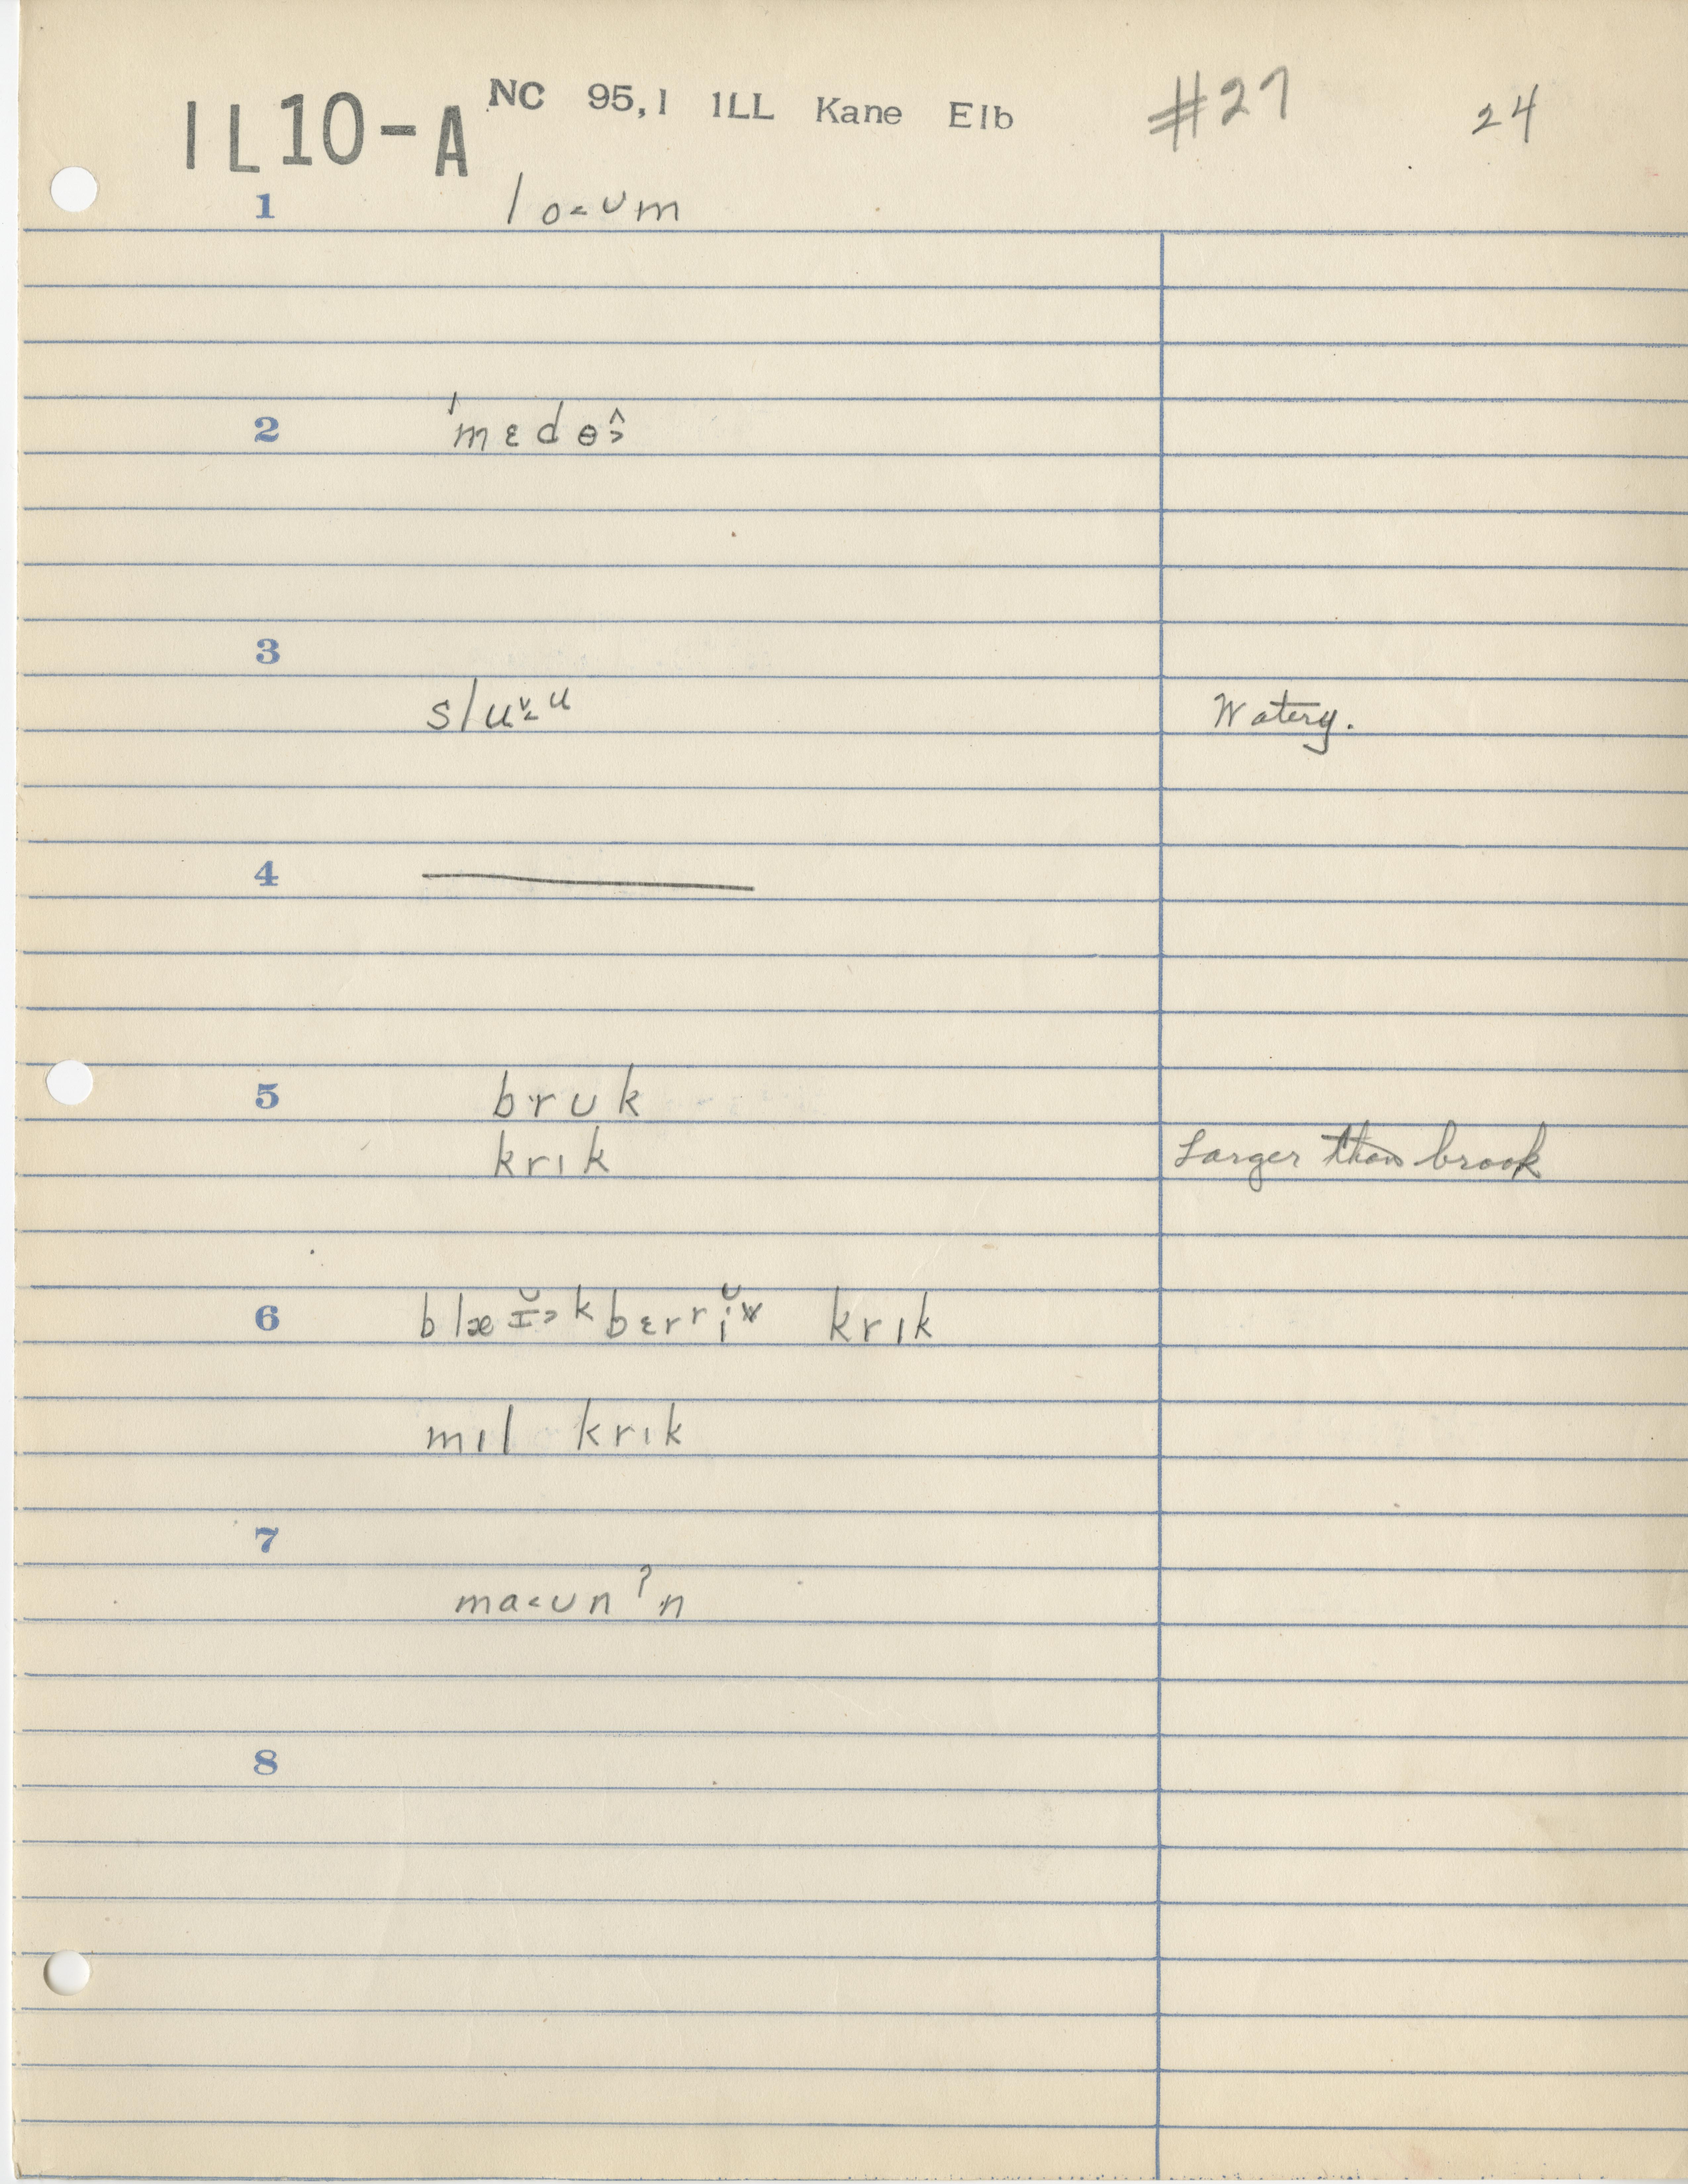 IL10-A NC 95,1 ILL Kane Elb #27 24
1 lo˂ʊm
2 ˈmɛdɵ˃̂
3
slu̬˂ᵘ Watery.
4 ———
5 brʊk
krɪk Larger than brook
6 blæɪ̆˃ᵏbɛrʳĭ˅ krɪk
mɪl krɪk
7
ma˂ʊnˀn
8